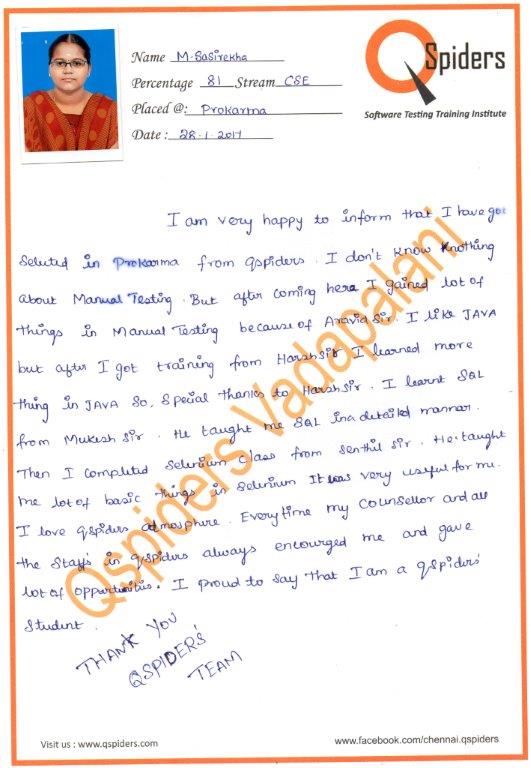 Name M. Sasirekha
Percentage 81 Stream CSE
Placed @: Prokarma
Date : 28.1.2017
QSpiders
Software Testing Training Institute
I am very happy to inform that I have got
Seleuted in Prokarma from qspiders. I don't know knothing
about Manual Testing. But after coming here I gained lot of
things in Manual Testing because of Aravid Sir. I like JAVA
but after I got training from Harsh Sir I learned more
thing in JAVA So, Special thanks to Harsh Sir. I learnt SQL
from Mukesh Sir. He taught me SQL in a detailed mannar.
Then I completed Selenium class from Senthil Sir. He taught
me lot of basic things in Selenium It was very useful for me.
I love qspiders atmosphere. Everytime my Counsellor and all
the Staffs in qspiders always encouraged me and gave
lot of opportunitius. I proud to say that I am a qspiders'
Student.
THANK YOU
QSPIDERS'
TEAM
Qspiders Vadapalani
Visit us : www.qspiders.com
www.facebook.com/chennai.qspiders